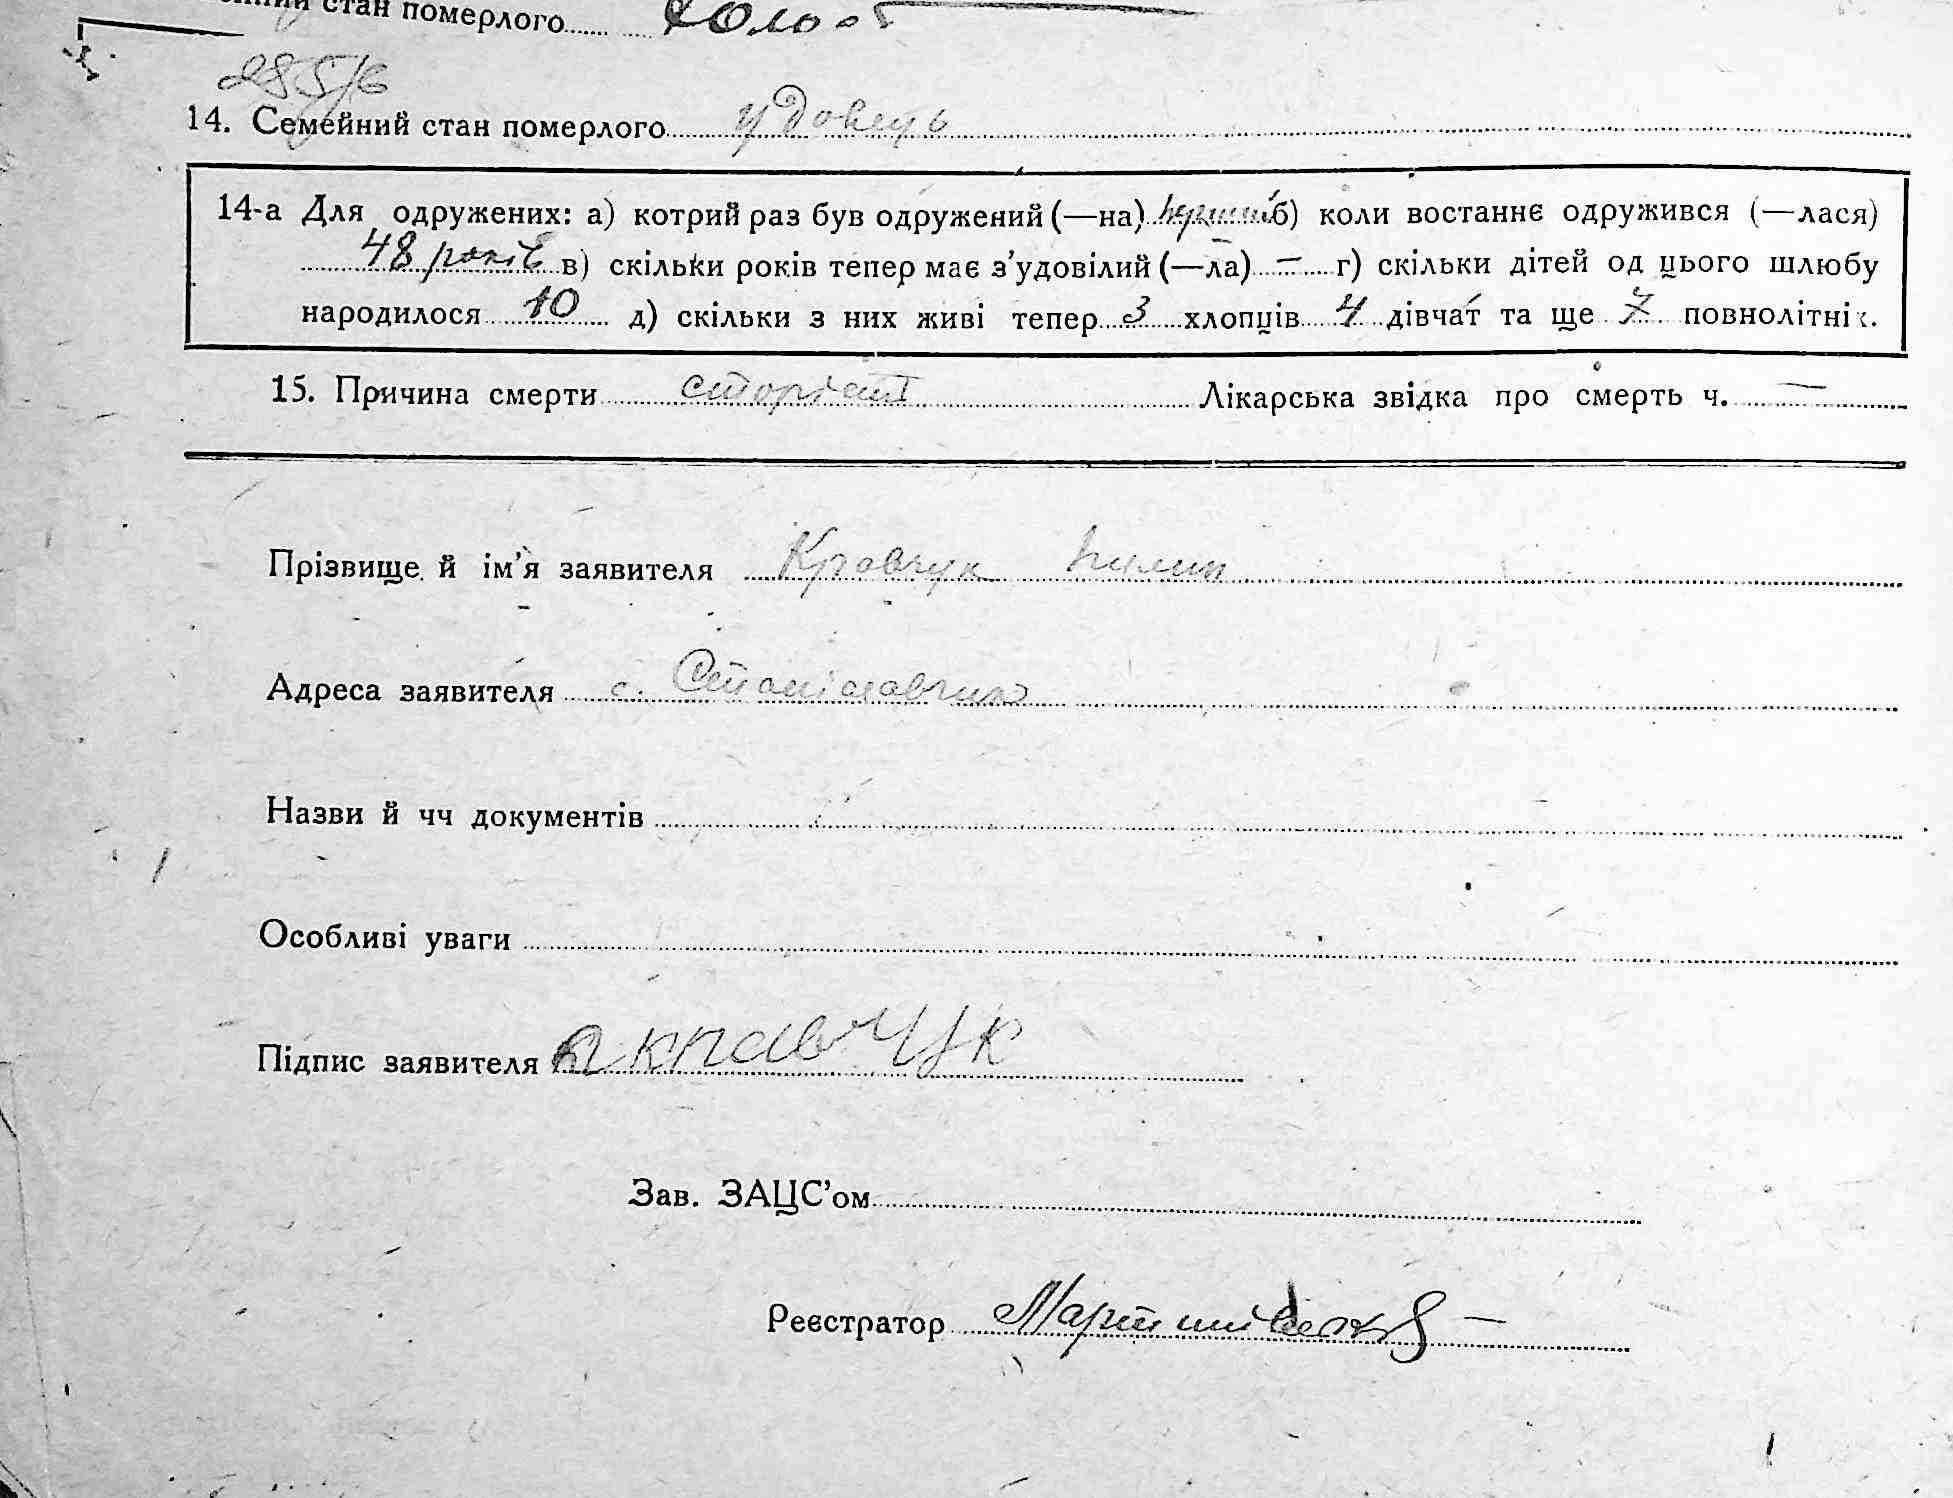 стан померлого
285/6
14. Семейний стан померлого удовець
14-а Для одружених: а) котрий раз був одружений (—на) перший б) коли востаннє одружився (—лася)
48 років в) скільки років тепер має з’удовілий (—ла) — г) скільки дітей од цього шлюбу
народилося 10 д) скільки з них живі тепер 3 хлопців 4 дівчат та ще 7 повнолітніх.
15. Причина смерти Лікарська звідка про смерть ч. —
Прізвище й ім’я заявителя Кравчук Пилип
Адреса заявителя с. Станіславчик
Назви й чч документів
Особливі уваги
Підпис заявителя П Кравчук
Зав. ЗАЦС’ом
Реєстратор